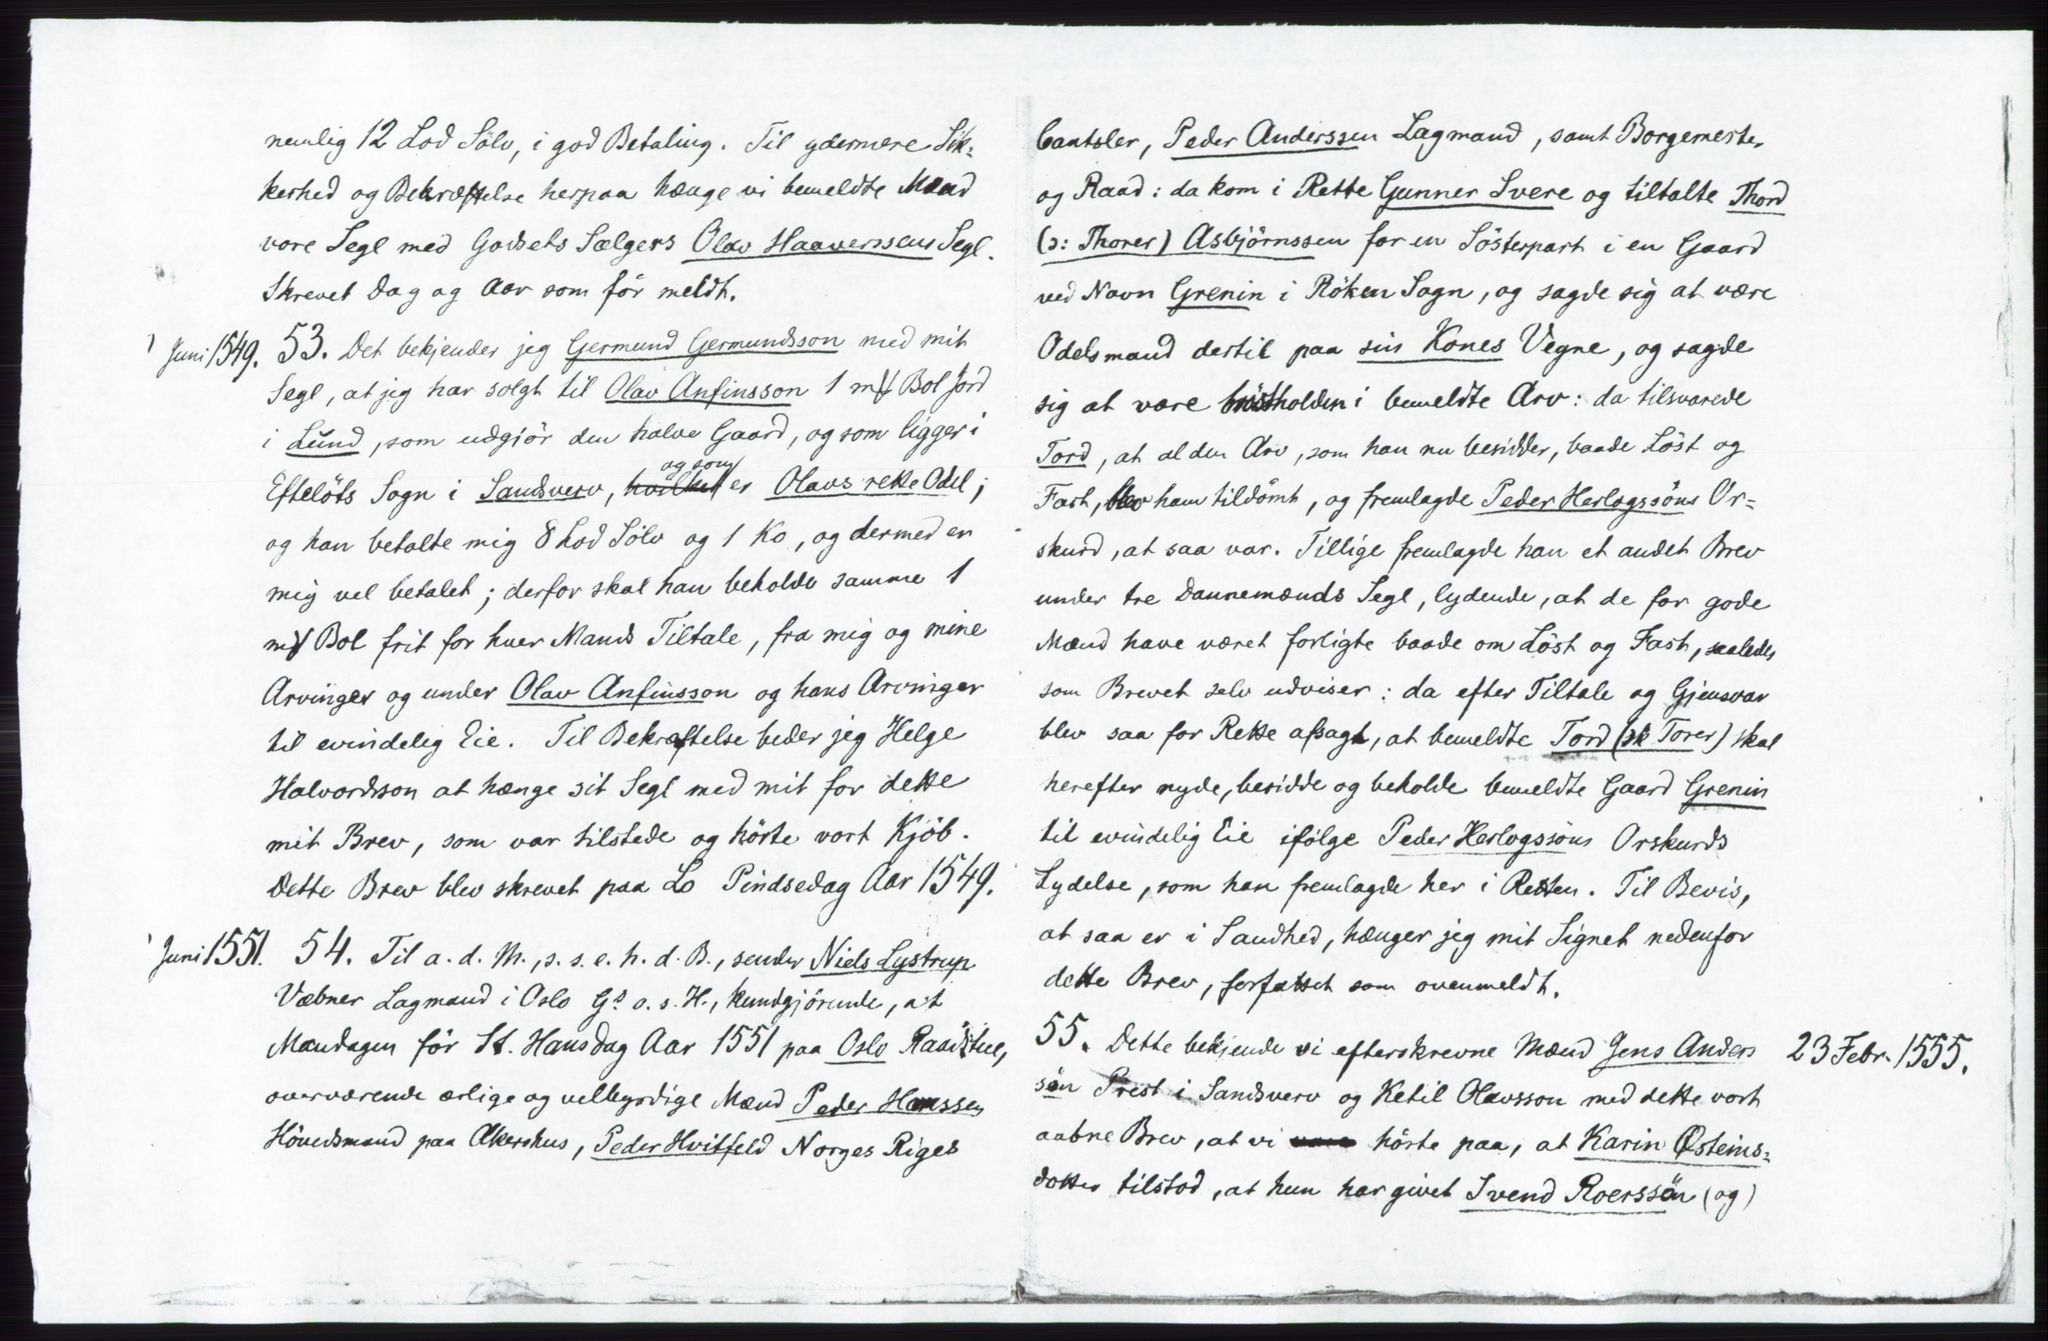 nemlig 12 Lod Sölv, i god Betaling. Til ydermere Sik-
kerhed og Bekræftelse herpaa hænge vi bemeldte Mænd
vore Segl med Godsets Sælgers Olav Haaverssens Segl.
Skrevet Dag og Aar som för meldt.
Juni 1549. 53. Det bekjender jeg Germund Germundsson med mit
Segl, at jeg har solgt til Olav Anfinsson 1 m Bol Jord
i Lund, som udgjör den halve Gaard, og som ligger i
Eftelöts Sogn i Sandsverv, hvilket og som er Olavs rette Odel;
og han betalte mig 8 Lod Sölv og 1 Ko, og dermed er
mig vel betalet; derfor skal han beholde samme 1
m Bol frit for hver Mands Tiltale, fra mig og mine
Arvinger og under Olav Anfinsson og hans Arvinger
til evindelig Eie. Til Bekræftelse beder jeg Helge
Halvordsson at hænge sit Segl med mit for dette
mit Brev, som var tilstede og hörte vort Kjöb.
Dette Brev blev skrevet paa Lo Pindsedag Aar 1549.
Juni 1551. 54. Til a. d. M., s. s. e. h. d. B., sender Niels Lystrup
Væbner Lagmand i Oslo Gs o. s. H., kundgjörende, at
Mandagen för St. Hansdag Aar 1551 paa Oslo Raadstue,
overværende ærlige og velbyrdige Mænd Peder Hanssen
Hövedsmand paa Akershus, Peder Hvitfeld Norges Riges
Cantsler, Peder Anderssen Lagmand, samt Borgemester
og Raad: da kom i Rette Gunner Svere og tiltalte Thord
(ɔ: Thorer) Asbjörnssen for en Södsterpart i en Gaard
ved Navn Grenin i Röken Sogn, og sagde sig at være
Odelsmand dertil paa sin Kones Vegne, og sagde
sig at være bröstholden i bemeldte Arv: da tilsvarede
Tord, at al den Arv, som han nu besidder, baade Löst og
Fast, blev ham tildömt, og fremlagde Peder Herlogssöns Or-
skurd, at saa var. Tillige fremlagde han et andet Brev
under tre Dannemænds Segl, lydende, at de for gode
Mænd have været forligte baade om Löst og Fast, saaledes
som Brevet selv udviser: da efter Tiltale og Gjensvar
blev saa for Rette afsagt, at bemeldte Tord (sk Torer) skal
herefter nyde, besidde og beholde bemeldte Gaard Grenin
til evindelig Eie ifölge Peder Herlogssöns Orskurds
Lydelse, som han fremlagde her i Retten. Til Bevis,
at saa er i Sandhed, hænger jeg mit Signet nedenfor
dette Brev, forfattet som ovenmeldt.
55. Dette bekjende vi efterskrevne Mænd Jens Anders 23 Febr. 1555.
sön Prest i Sandsverv og Ketil Olavsson med dette vort
aabne Brev, at vi hörte paa, at Karin Østeins-
dotter tilstod, at hun har givet Svend Roerssön (og)